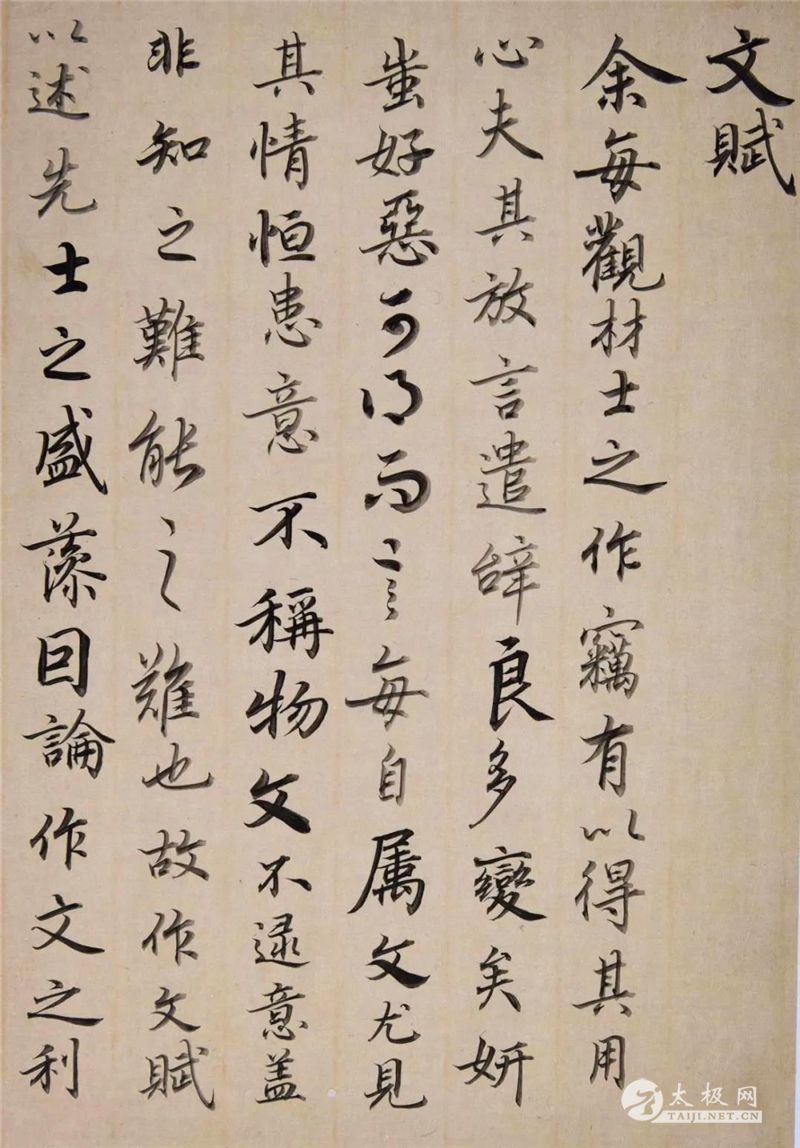 文賦
余每觀材士之作竊有以得其用
心夫其放言遣辭良多變矣妍
蚩好惡可得而言每自属文尤見
其情恒患意不稱物文不逮意盖
非知之難能之難也故作文賦
以述先士之盛藻因論作文之利
太极网
TAIJI.NET.CN